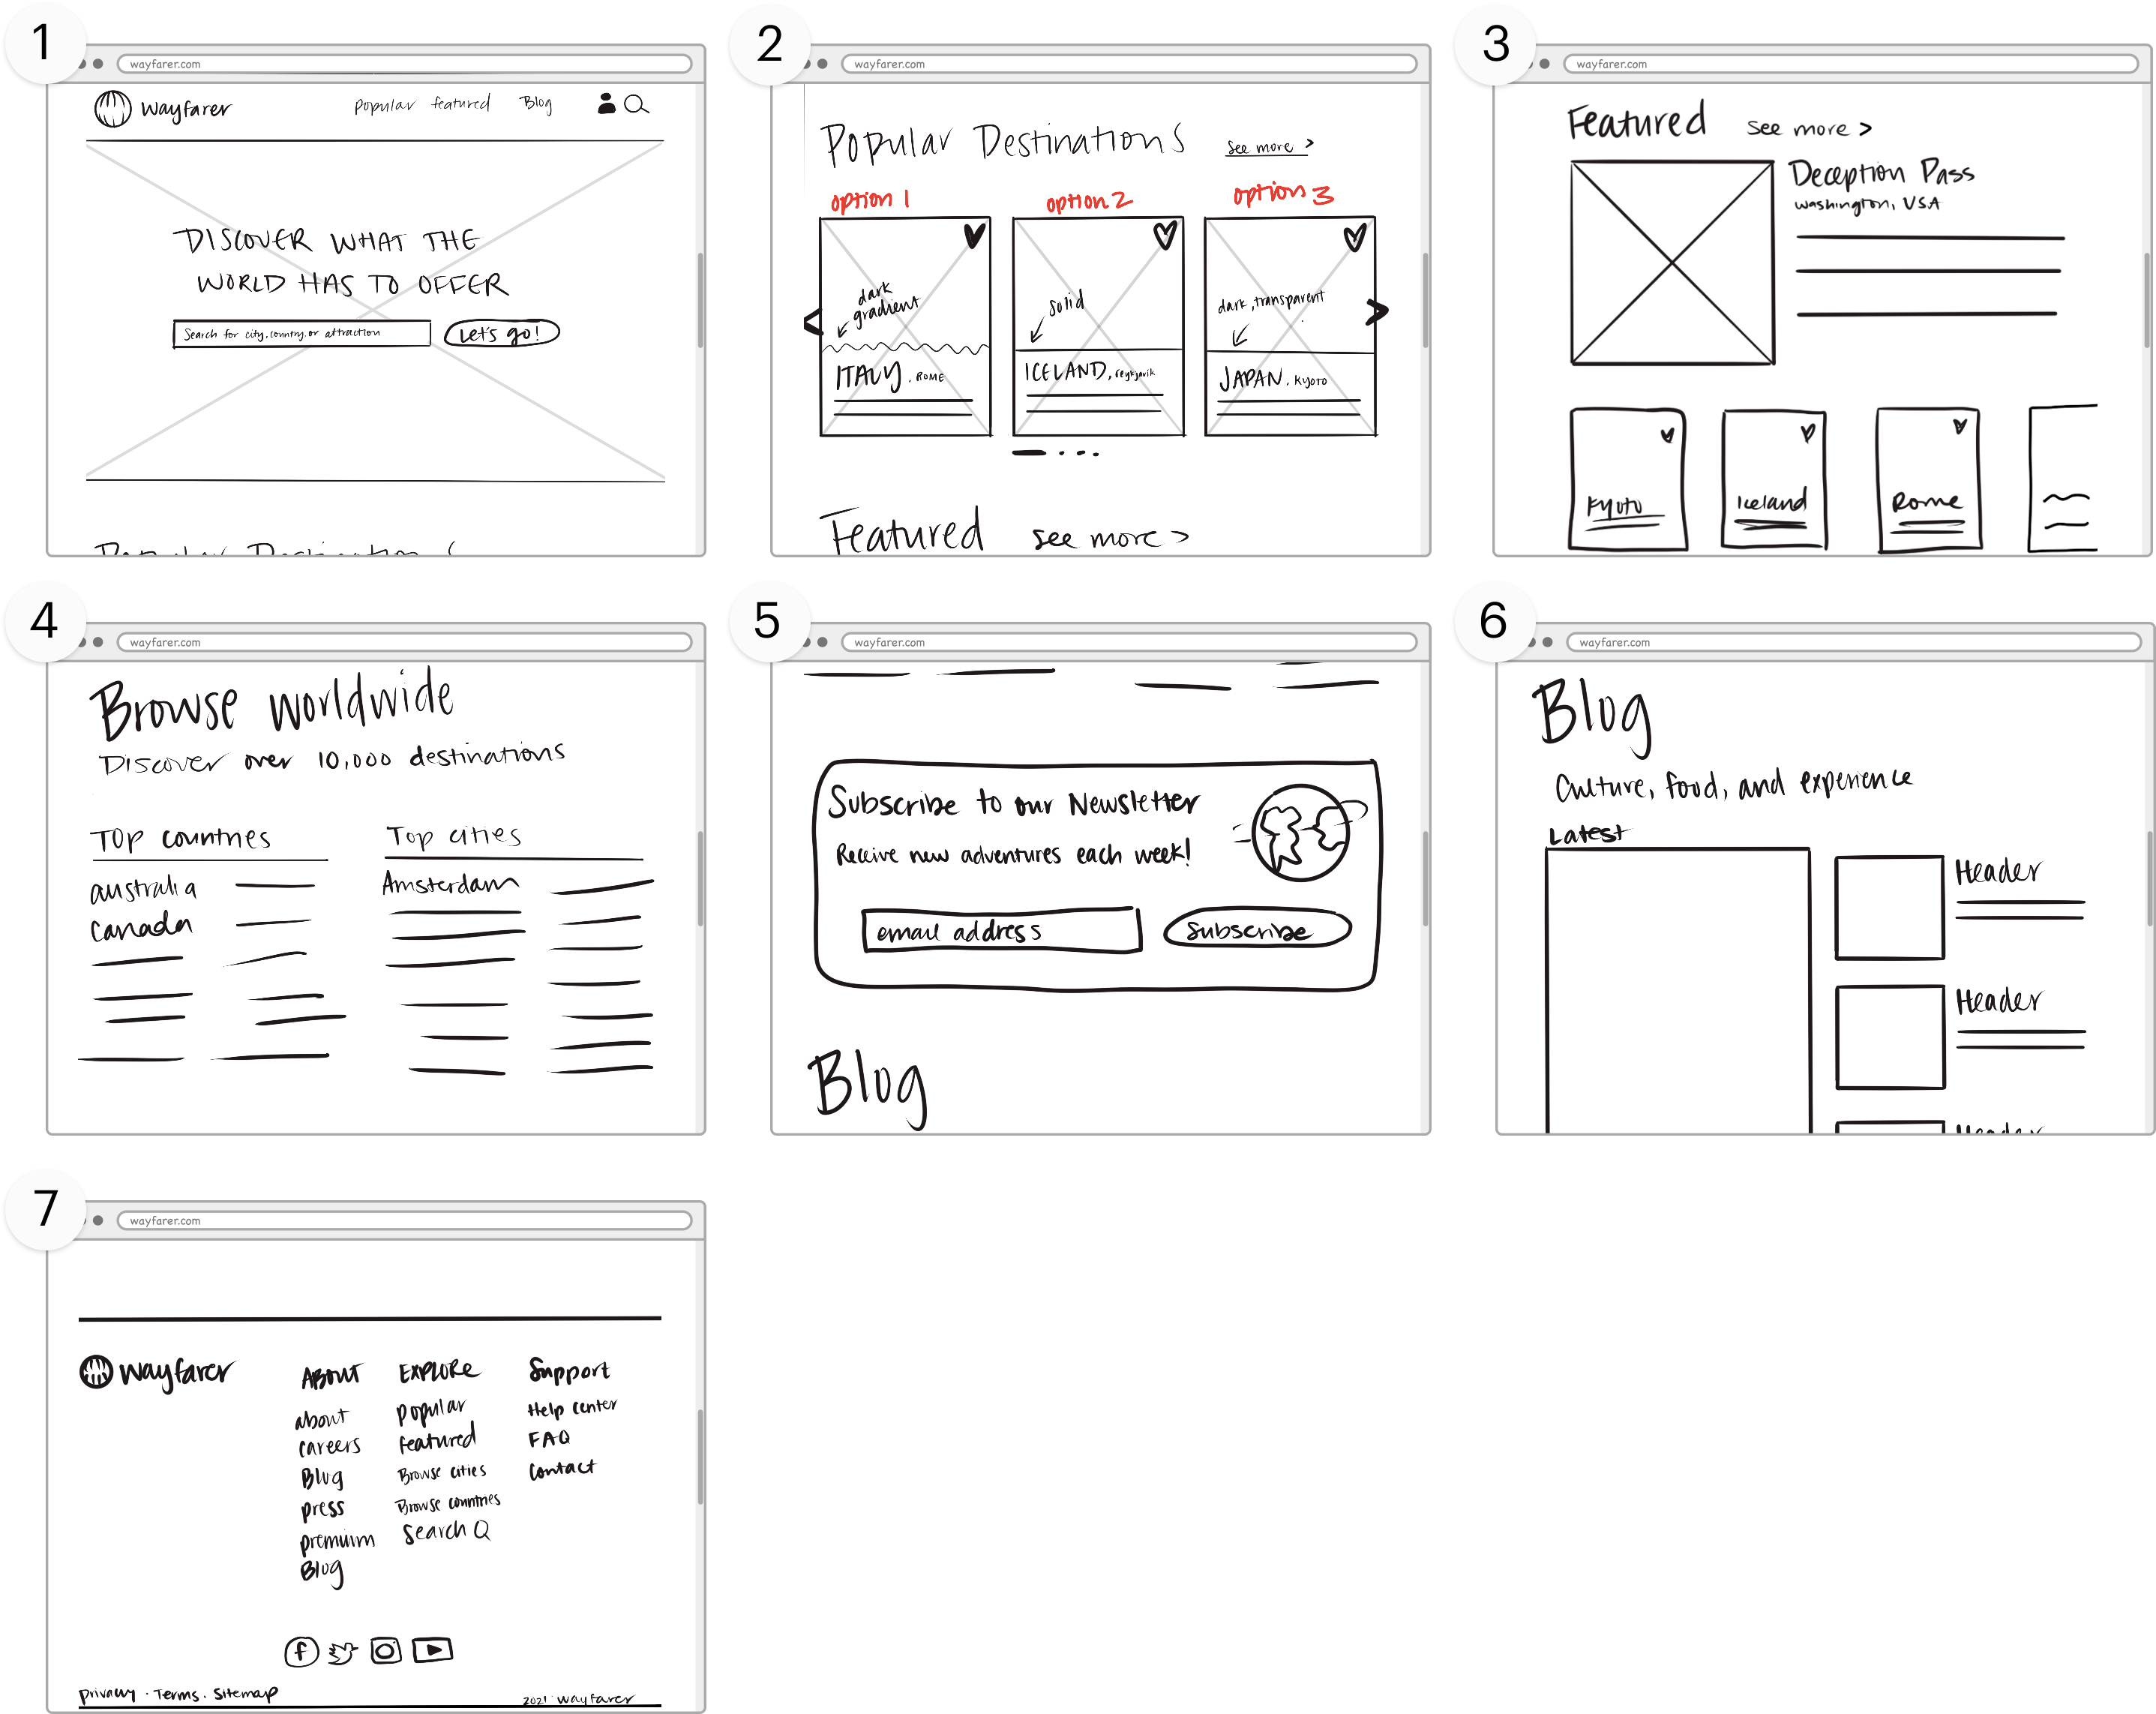 1
wayfarer.com
wayfarer Popular featured Blog
DISCOVER WHAT THE
WORLD HAS TO OFFER
Search for city, country, or attraction Let's go!
Popular Destinations
2
wayfarer.com
Popular Destinations See more >
option 1 option 2 option 3
dark
gradient
solid
dark, transparent
ITALY, ROME
ICELAND, Reykjavik
JAPAN, Kyoto
Featured see more >
3
wayfarer.com
Featured See more >
Deception Pass
Washington, USA
Kyoto Iceland Rome
4
wayfarer.com
Browse worldwide
Discover over 10,000 destinations
Top countries Top cities
australia Amsterdam
Canada
5
wayfarer.com
Subscribe to our Newsletter
Receive new adventures each week!
email address Subscribe
Blog
6
wayfarer.com
Blog
Culture, food, and experience
Latest
Header
Header
Header
7
wayfarer.com
wayfarer
ABOUT
about
careers
Blog
press
premium
Blog
EXPLORE
popular
featured
Browse cities
Browse countries
Search
Support
Help center
FAQ
Contact
f
Privacy · Terms · Sitemap 2021 wayfarer